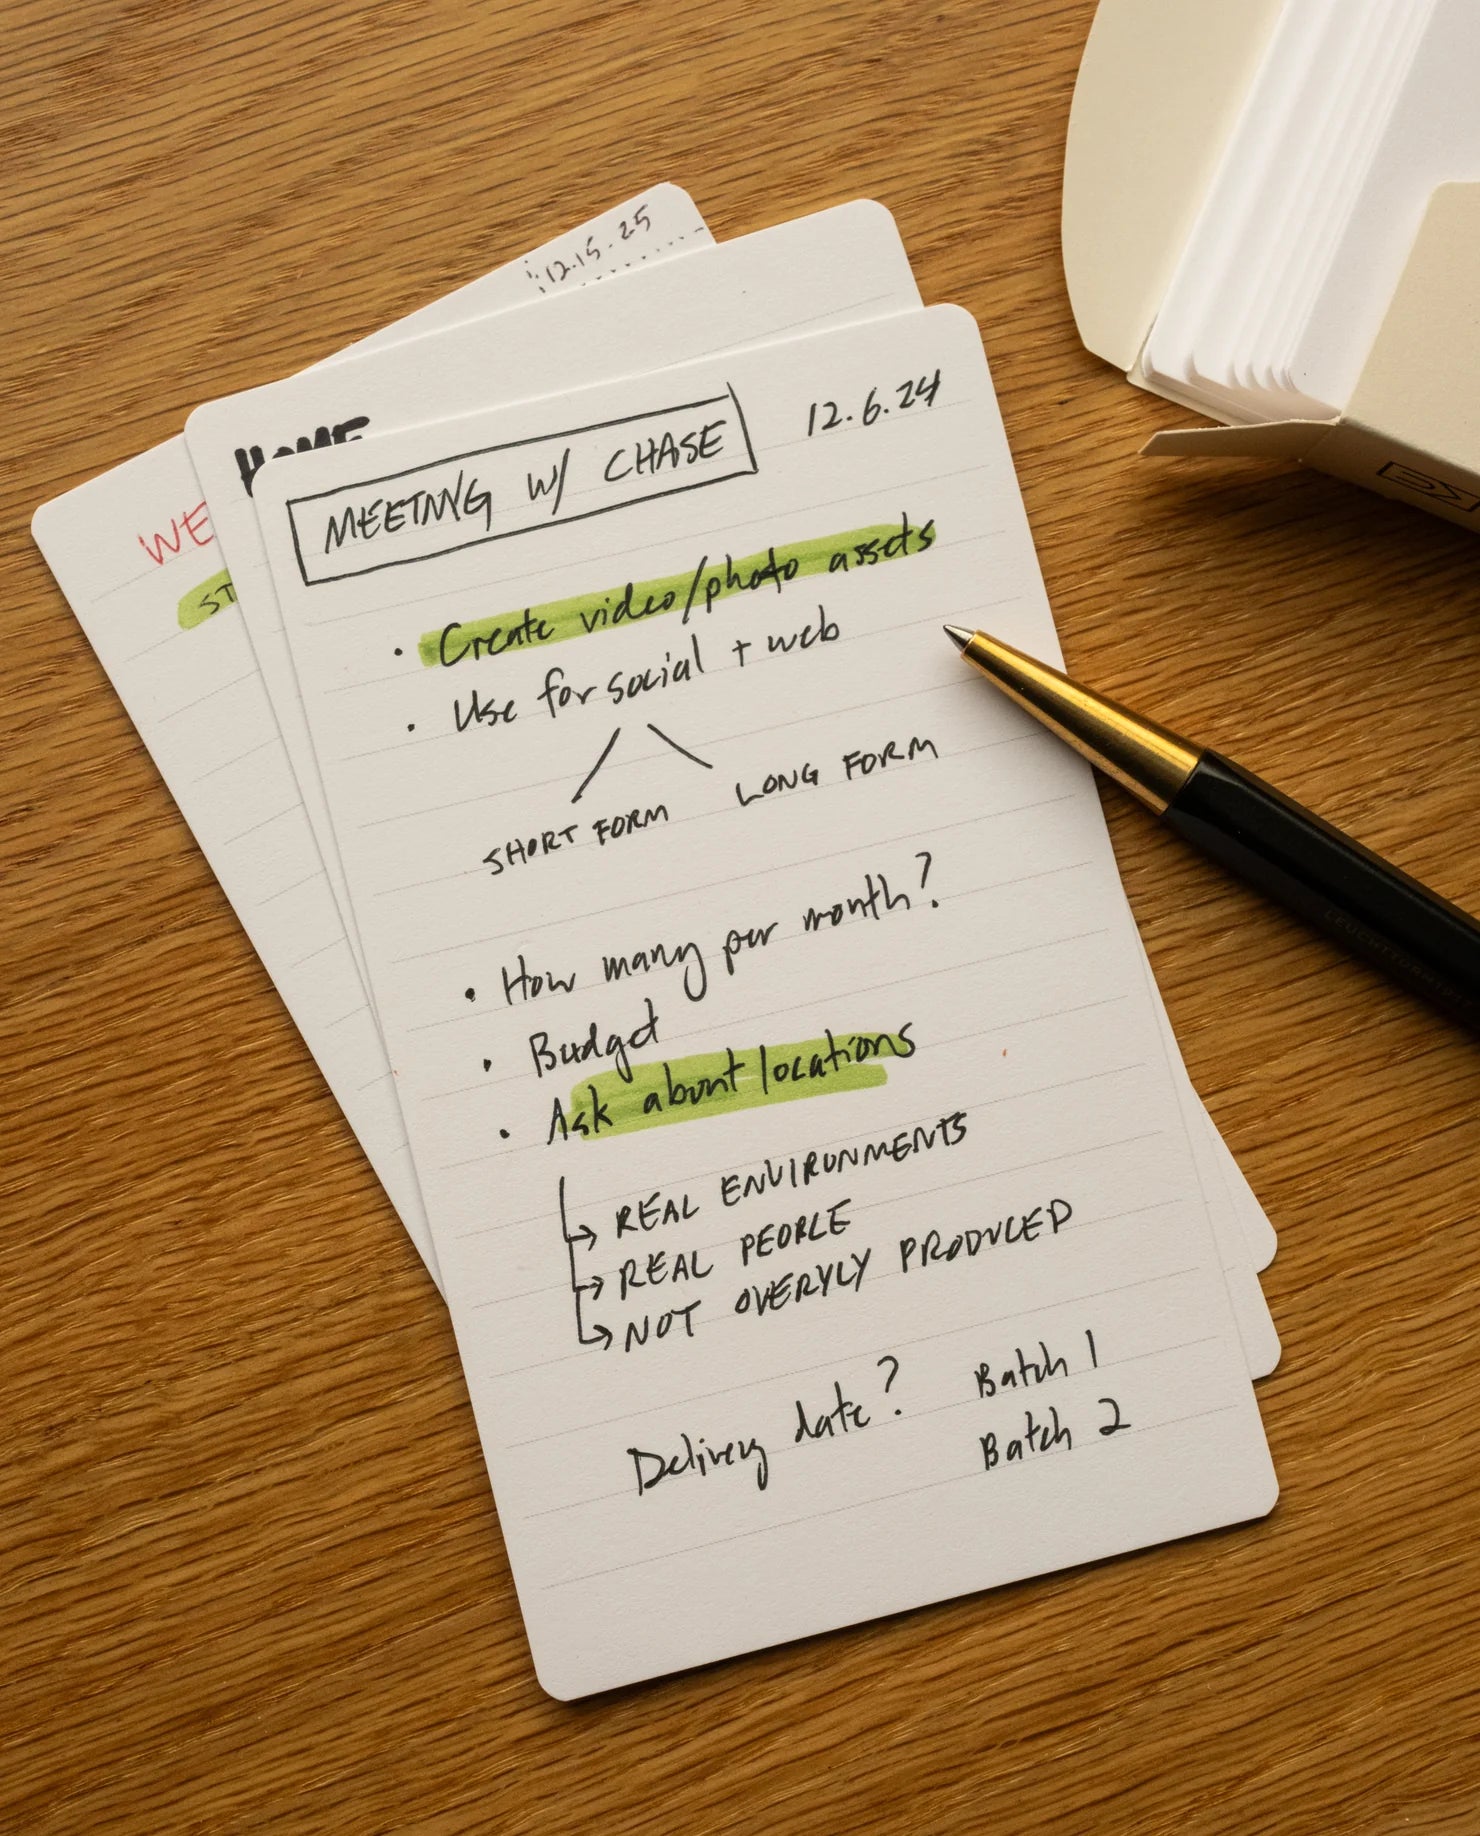 12.15.25
HOME
WE
ST
MEETING W/ CHASE
12.6.24
• Create video/photo assets
• Use for social + web
SHORT FORM
LONG FORM
• How many per month?
• Budget
• Ask about locations
→ REAL ENVIRONMENTS
→ REAL PEOPLE
→ NOT OVERYLY PRODUCED
Delivery date?
Batch 1
Batch 2
LEUCHTTURM1917